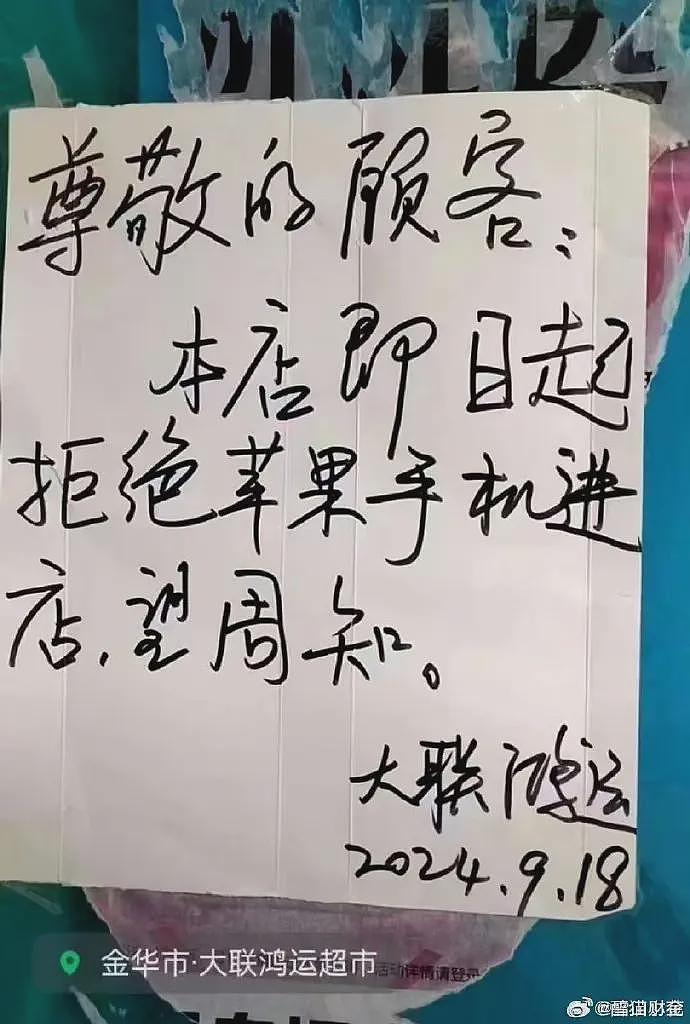 尊敬的顾客：
本店即日起
拒绝苹果手机进
店，望周知。
大联鸿运
2024.9.18
金华市·大联鸿运超市
活动详情请登录
@醫猫财经